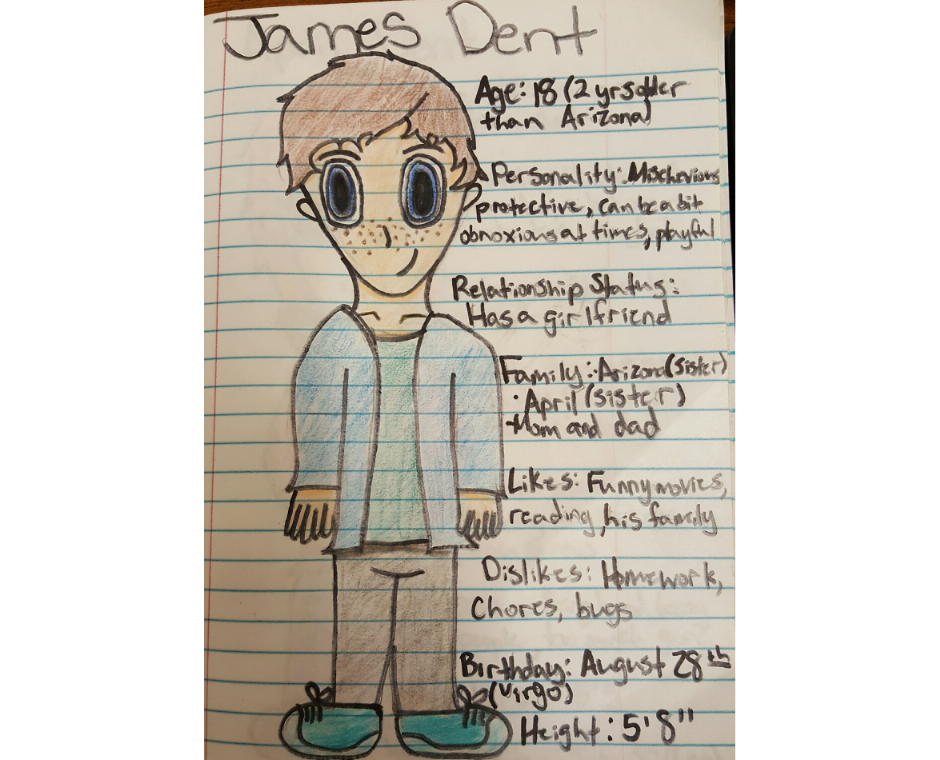 James Dent
Age: 18 (2 yrs older
than Arizona)
Personality: Mischevious
protective, can be a bit
obnoxious at times, playful
Relationship Status:
Has a girlfriend
Family: · Arizona (sister)
· April (sister)
· Mom and dad
Likes: Funny movies,
reading, his family
Dislikes: Homework,
Chores, bugs
Birthday: August 28th
(Virgo)
Height: 5'8"